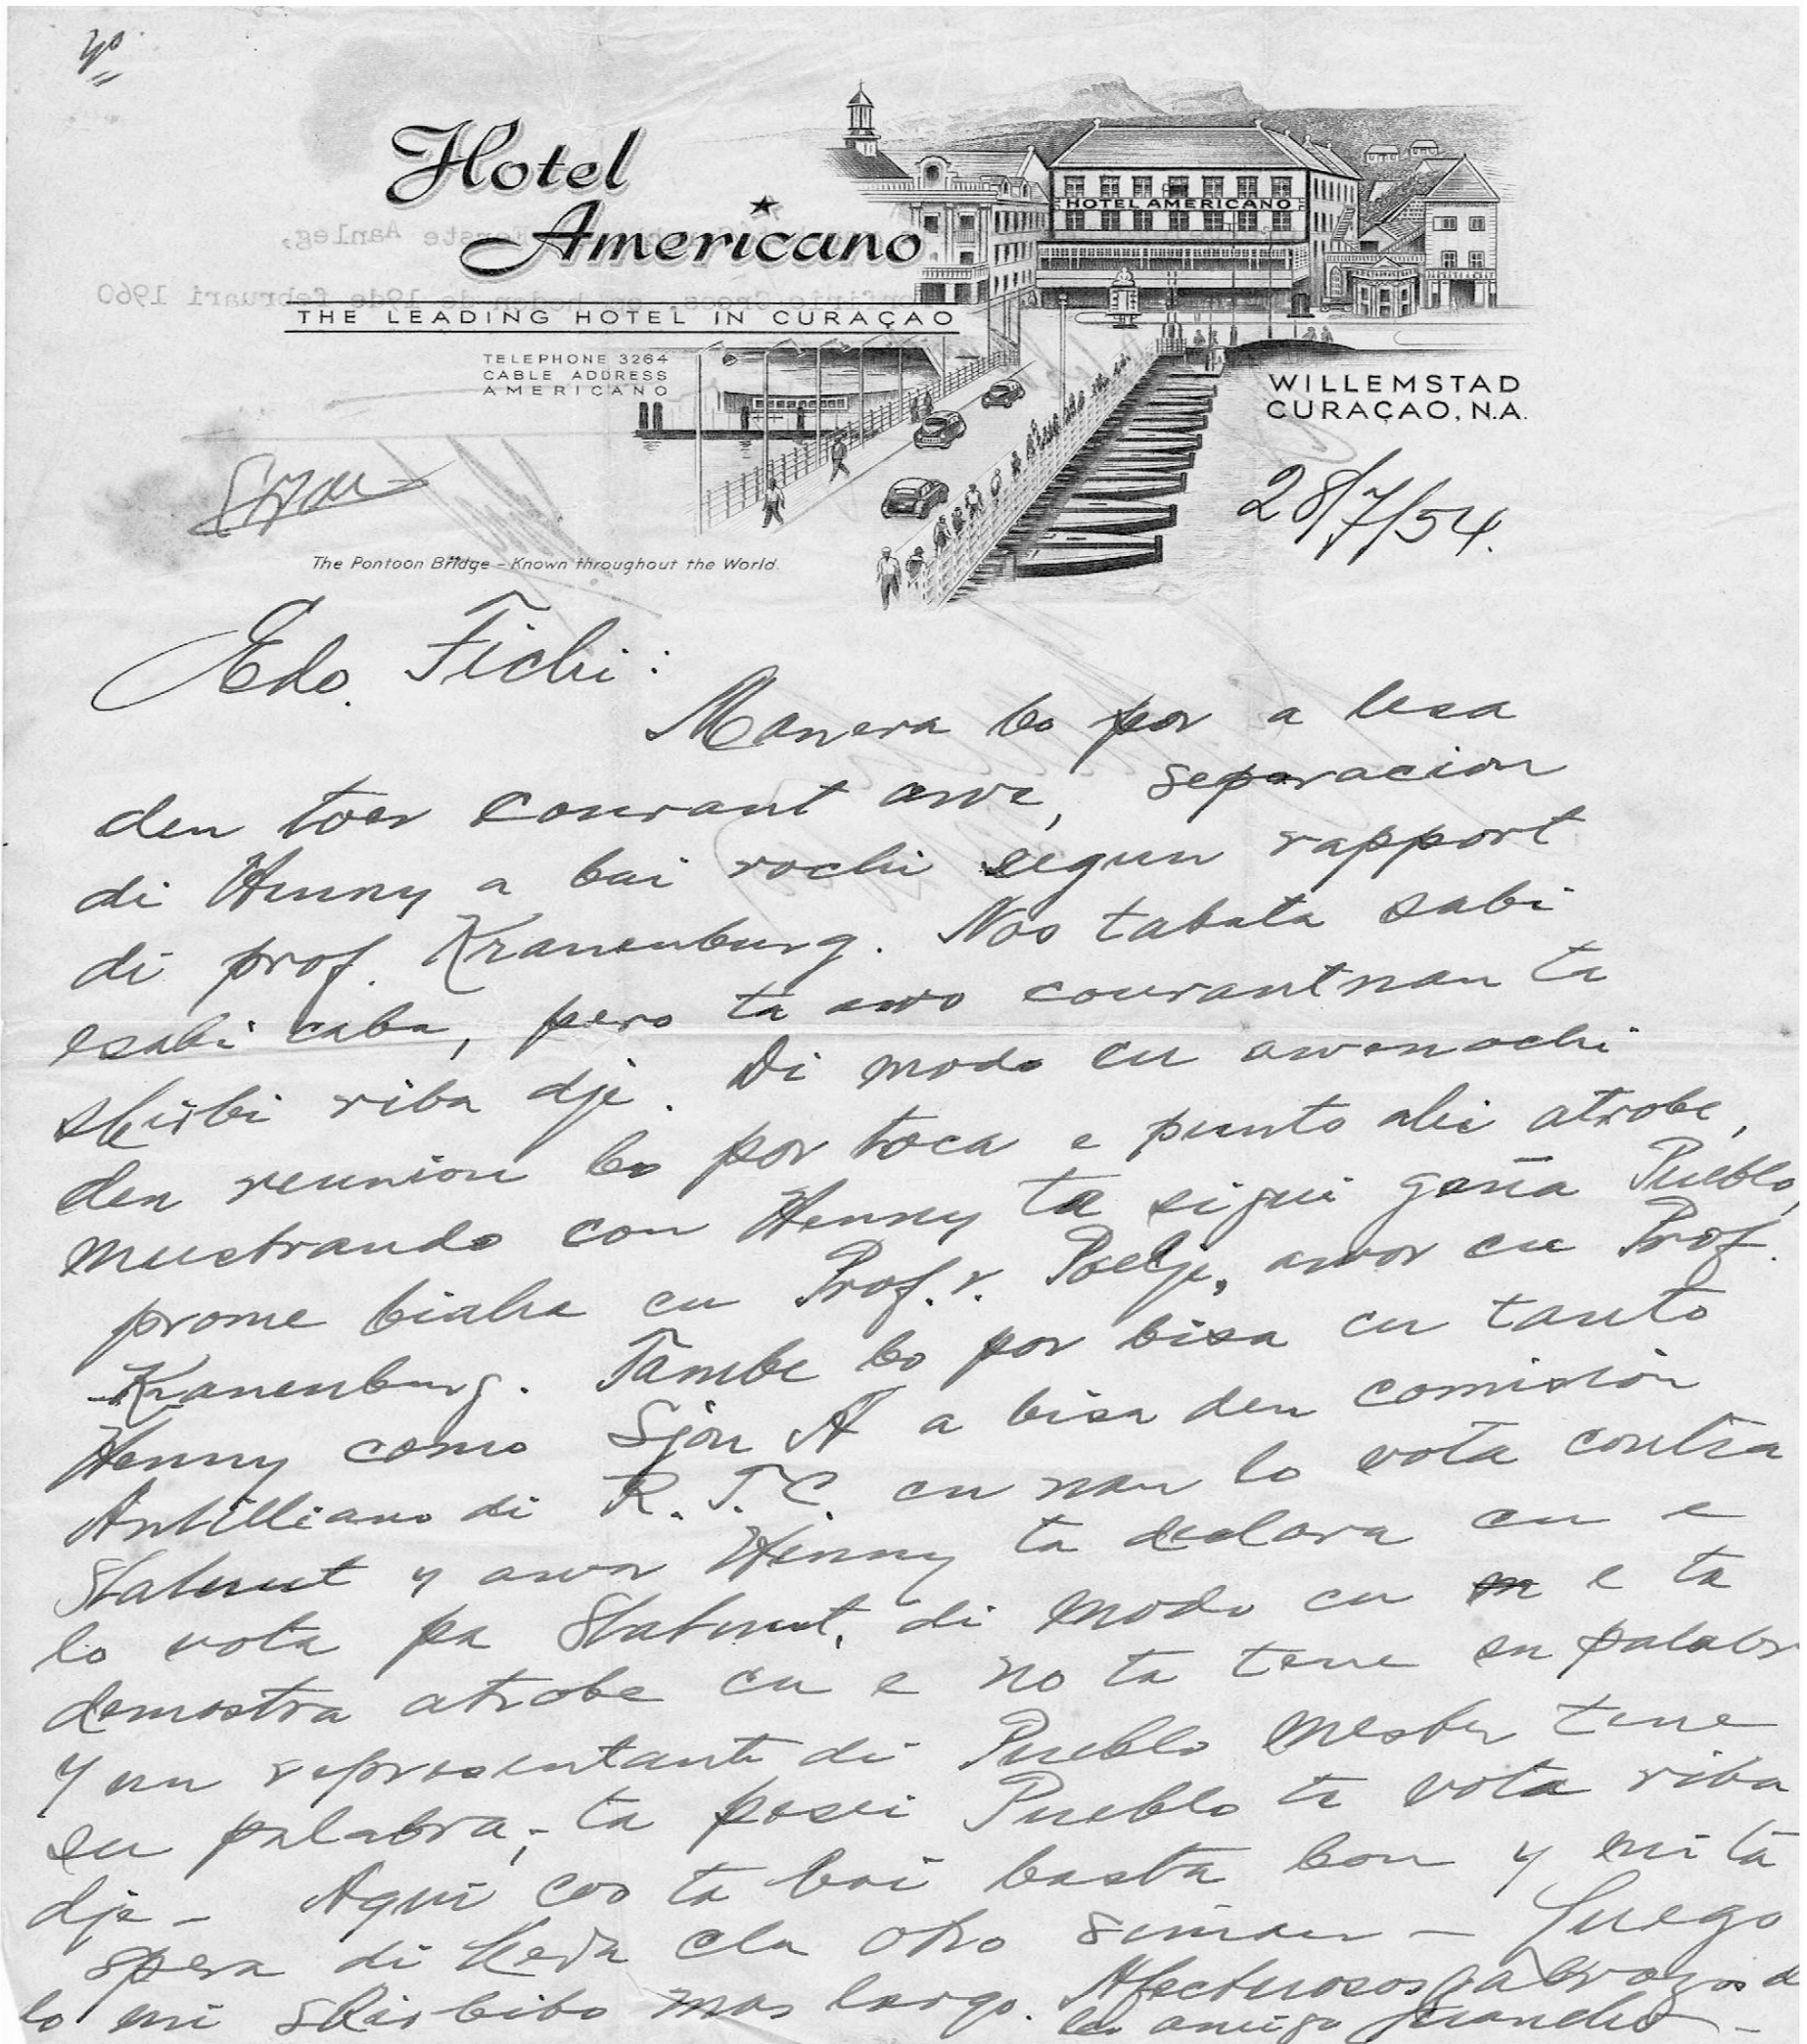 Hotel
Americano
HOTEL AMERICANO
THE LEADING HOTEL IN CURAÇAO
TELEPHONE 3264
CABLE ADDRESS
AMERICANO
WILLEMSTAD
CURAÇAO, N.A.
28/7/54.
The Pontoon Bridge – Known throughout the World.
Edo. Fichi:
Manera bo por a lesa
den toer courant awe, separacion
di Henny a bai rochi segun rapport
di prof. Kranenburg. Nos tabata sabi
esaki caba, pero ta awo courantnan ta
skirbi riba dje. Di modo cu awenochi
den reunion bo por toca e punto aki atrobe,
mustrando con Henny ta sigui gaña Pueblo,
prome biaha cu Prof. v. Poelje, awor cu Prof.
Kranenburg. Tambe bo por bisa cu tanto
Henny como Sjon A a bisa den comision
Antilliano di R.T.C. cu nan lo vota contra
Statuut y awor Henny ta declara cu e
lo vota pa Statuut, di modo cu e ta
demostra atrobe cu e no ta tene su palabr
y un representante di Pueblo mester tene
su palabra; ta pesei Pueblo ta vota riba
dje – Aqui cos ta bai basta bon y mi ta
spera di keda cla otro siman – Luego
lo mi skirbibo mas largo. Afectuosos abrazos d
bo amigo Juancho –